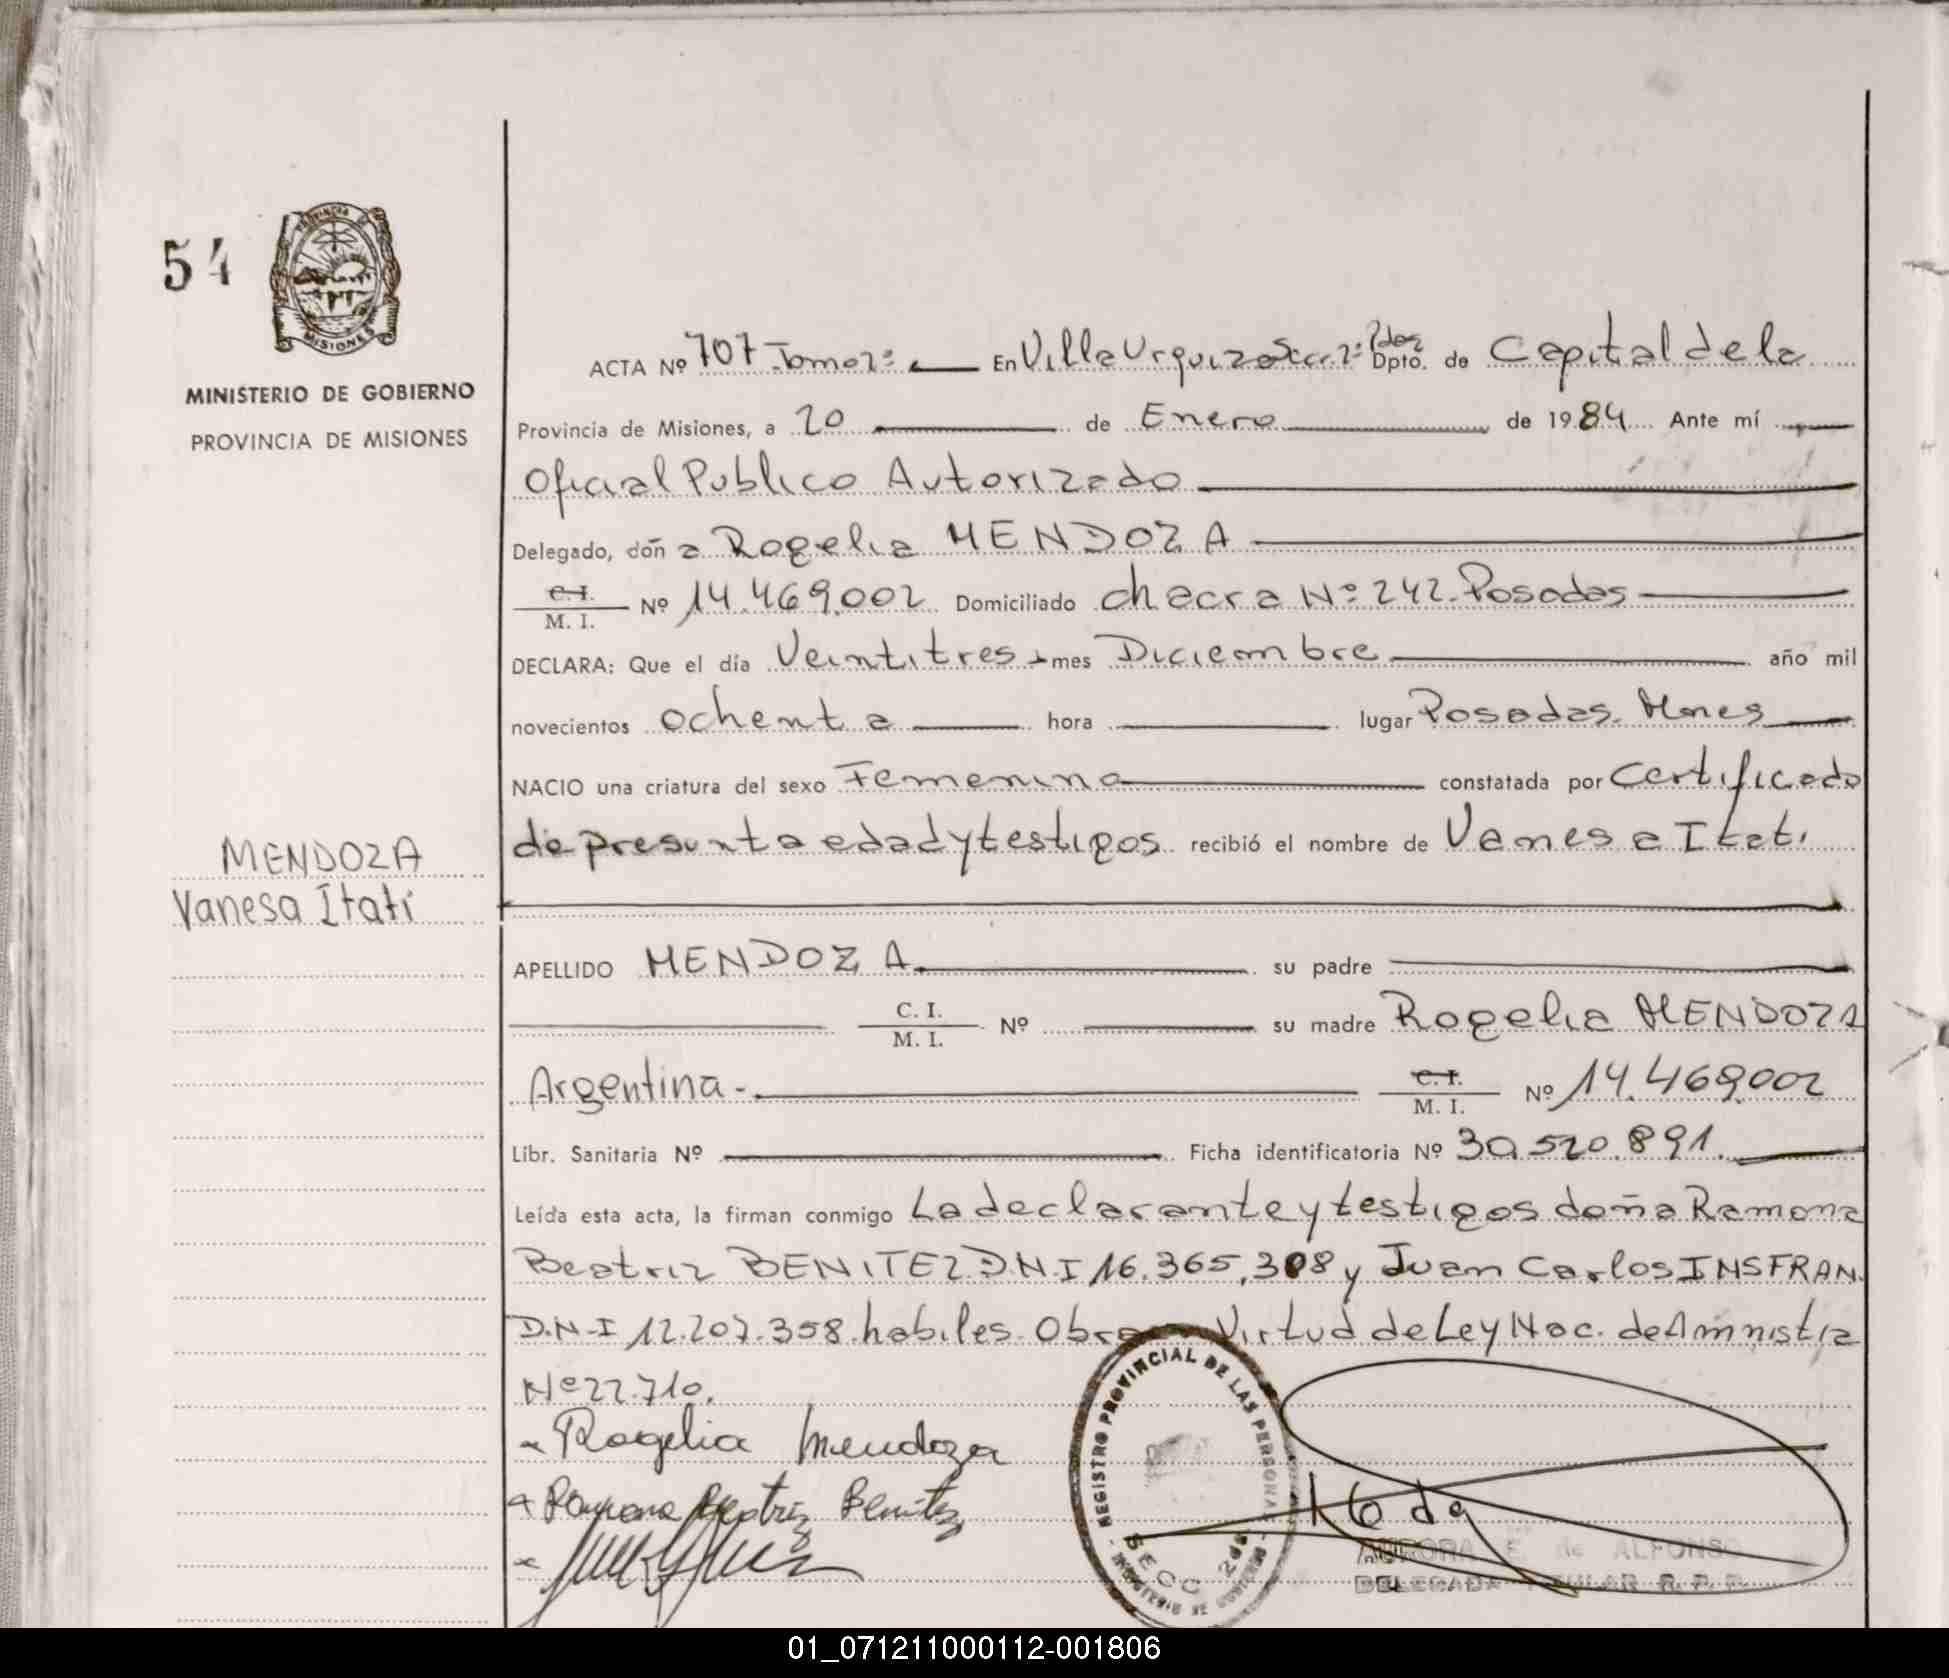 54
PROVINCIA DE
MISIONES
MINISTERIO DE GOBIERNO
PROVINCIA DE MISIONES
MENDOZA
Vanesa Itatí
ACTA Nº 707 Tomo 2º En Villa Urquiza Secc. 2ª Pdas Dpto. de Capital de la
Provincia de Misiones, a 20 de Enero de 1984 Ante mí
Oficial Publico Autorizado
Delegado, doña Rogelia MENDOZA
C.I. / M. I. Nº 14.469.002 Domiciliado chacra Nº 242. Posadas
DECLARA: Que el día Veintitres mes Diciembre año mil
novecientos ochenta hora lugar Posadas. Mnes
NACIO una criatura del sexo Femenino constatada por Certificado
de presunta edad y testigos recibió el nombre de Vanesa Itati
APELLIDO MENDOZA su padre
C. I. / M. I. Nº su madre Rogelia MENDOZA
Argentina - C.I. / M. I. Nº 14.469.002
Libr. Sanitaria Nº Ficha identificatoria Nº 30.520.891.
Leída esta acta, la firman conmigo La declarante y testigos doña Ramona
Beatriz BENITEZ D.N.I 16.365.308 y Juan Carlos INSFRAN.
D.N.I 12.207.358. habiles. Obra en Virtud de Ley Nac. de Amnistia
Nº 22.710.
Rogelia Mendoza
Ramona Beatriz Benitez
REGISTRO PROVINCIAL DE LAS PERSONAS
SECC 2ª
AURORA E. de ALFONSO
DELEGADA TITULAR R. P. P.
01_071211000112-001806